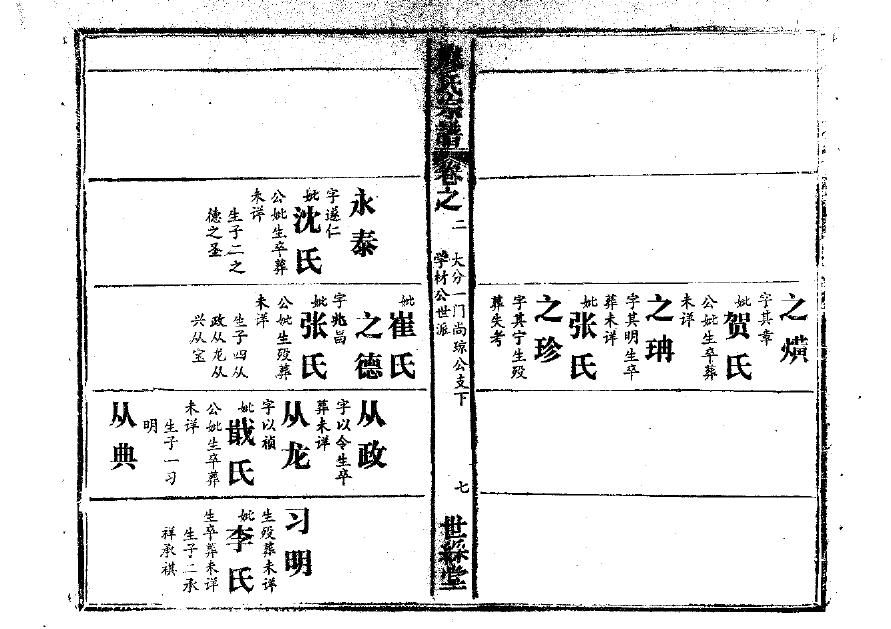 之熿
字其章
妣贺氏
公妣生卒葬
未详
之珃
字其明生卒
葬未详
妣张氏
之珍
字其宁生殁
葬失考
氏宗譜卷之二
大分一门尚琮公支下
学材公世派
七
世綵堂
永泰
字遂仁
妣沈氏
公妣生卒葬
未详
生子二之
德之圣
妣崔氏
之德
字兆昌
妣张氏
公妣生殁葬
未详
生子四从
政从龙从
兴从宝
从政
字以令生卒
葬未详
从龙
字以祯
妣戢氏
公妣生卒葬
未详
生子一习
明
从典
习明
生殁葬未详
妣李氏
生卒葬未详
生子二承
祥承祺